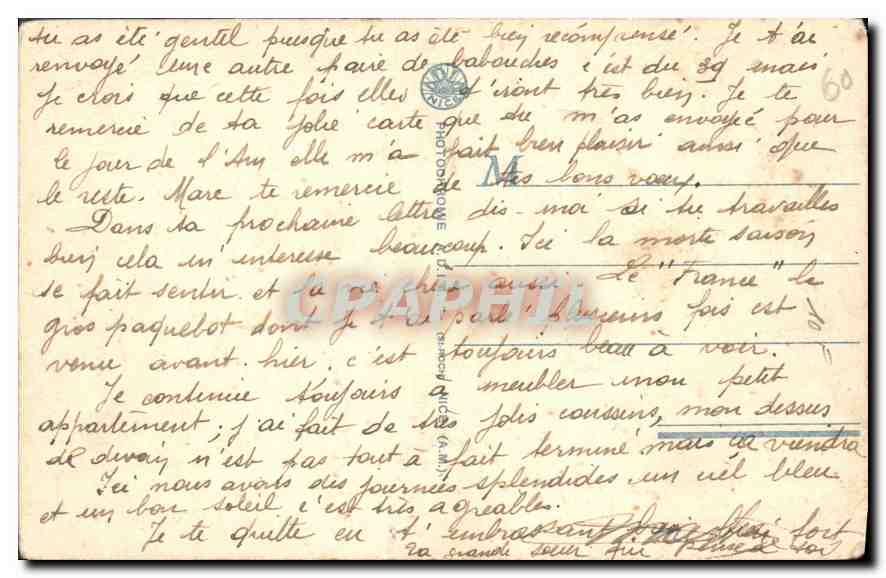 tu as été gentil puisque tu as été bien récompensé. Je t'ai
renvoyé une autre paire de babouches c'est du 39 mais
je crois que cette fois elles t'iront très bien. Je te
remercie de ta jolie carte que tu m'as envoyée pour
le jour de l'An elle m'a fait bien plaisir ainsi que
le reste. Marc te remercie de tes bons voeux.
Dans ta prochaine lettre dis-moi si tu travailles
bien cela m'interesse beaucoup. Ici la morte saison
se fait sentir et la vie chère aussi. Le "France" le
gros paquebot dont je t'ai parlé plusieurs fois est
venu avant-hier, c'est toujours beau à voir.
Je continue toujours à meubler mon petit
appartement; j'ai fait de très jolis coussins, mon dessus
de divan n'est pas tout à fait terminé mais ça viendra
Ici nous avons des journées splendides un ciel bleu
et un bon soleil c'est très agréables.
Je te quitte en t'embrassant bien fort
ta grande soeur qui pense à toi
60
-10-
M
NICE
PHOTOCHROMIE
NICE (A.M.)
CPAPHIL